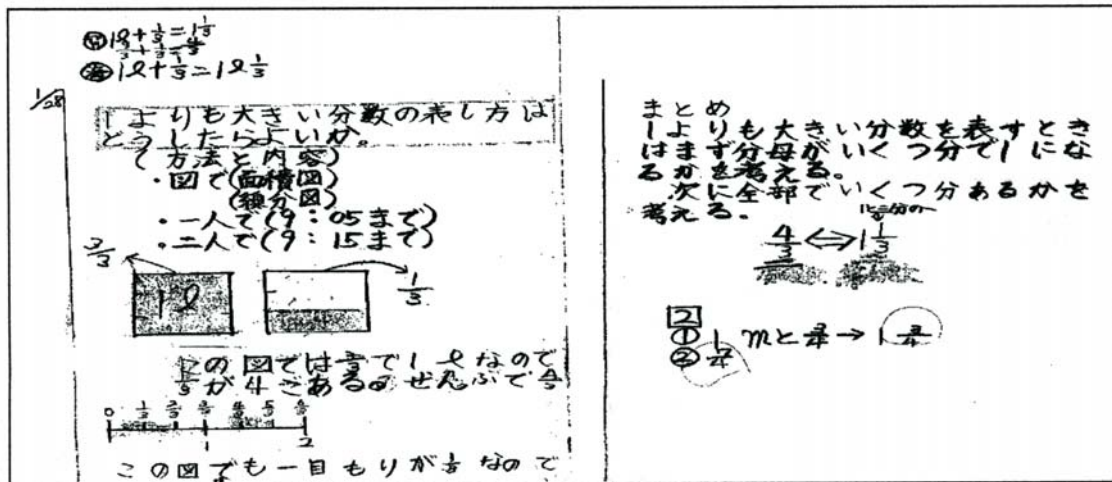 1ℓ+1/3=1 1/3
3/3+1/3=4/3
1ℓ+1/3=1ℓ1/3
1/28
1よりも大きい分数の表し方は
どうしたらよいか。
(方法と内容)
・図で(面積図)
(線分図)
・一人で(9:05まで)
・二人で(9:15まで)
3/3
1ℓ
1/3
この図では3/3で1ℓなので
1/3が4こあるので ぜんぶで4/3
0 1/3 2/3 3/3 4/3 5/3 6/3
1 2
この図でも一目もりが1/3なので
まとめ
1よりも大きい分数を表すとき
はまず分母がいくつ分で1にな
るかを考える。
次に全部でいくつ分あるかを
考える。
4/3⇔1 1/3
2
① 1mと3/4→1 3/4
② 7/4